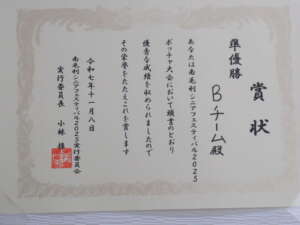 賞状
準優勝
Bチーム殿
あなたは南毛利シニアフェスティバル2025
ボッチャ大会において頭書のとおり
優秀な成績を収められましたので
その栄誉をたたえこれを賞します
令和七年十一月八日
南毛利シニアフェスティバル2025実行委員会
実行委員長 小林